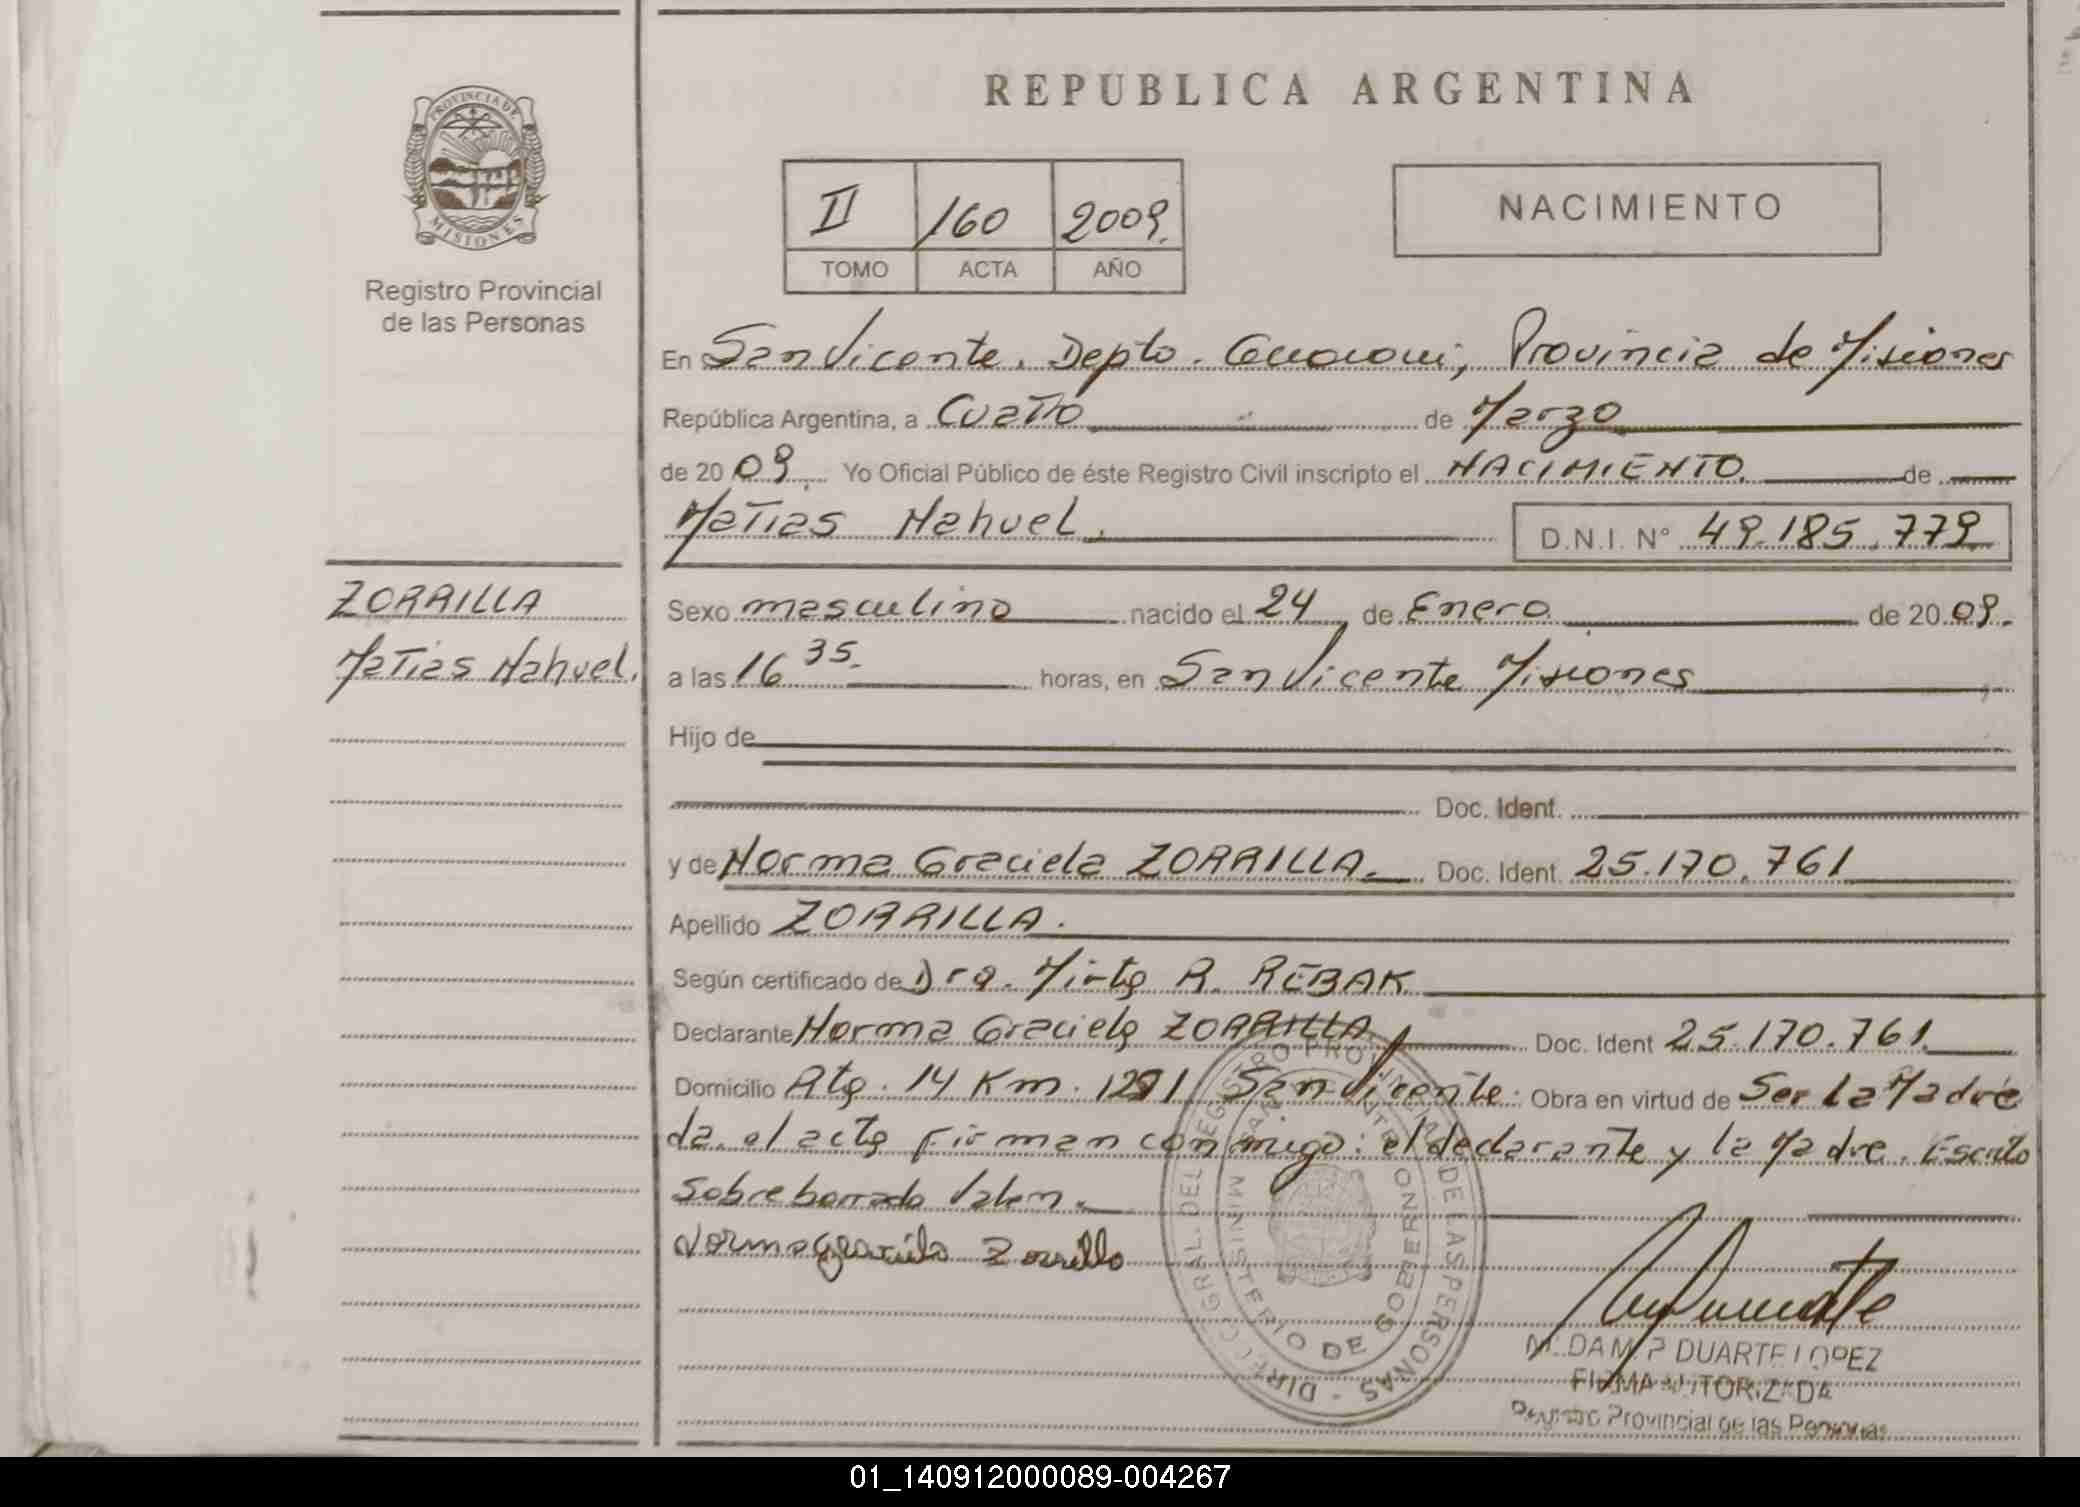 PROVINCIA DE
MISIONES
Registro Provincial
de las Personas
ZORRILLA
Matias Nahuel.
REPUBLICA ARGENTINA
II 160 2009.
TOMO ACTA AÑO
NACIMIENTO
En San Vicente. Depto. Guarani, Provincia de Misiones
República Argentina, a Cuatro de Marzo
de 20 09. Yo Oficial Público de éste Registro Civil inscripto el NACIMIENTO. de
Matias Nahuel. D.N.I. N° 49.185.779
Sexo masculino nacido el 24 de Enero de 20 09.
a las 16 35. horas, en San Vicente Misiones
Hijo de
Doc. Ident.
y de Norma Graciela ZORRILLA. Doc. Ident. 25.170.761
Apellido ZORRILLA.
Según certificado de Dra. Mirta R. REBAK
Declarante Norma Graciela ZORRILLA Doc. Ident 25.170.761.
Domicilio Rta. 14 Km. San Vicente. Obra en virtud de Ser La Madre
da el acta firman conmigo: el declarante y la Madre. Escrito
Sobreborrado Valen.
Norma Graciela Zorrilla
DIREC. GRAL. DEL REGISTRO PROVINCIAL DE LAS PERSONAS
MINISTERIO DE GOBIERNO
DUARTE LOPEZ
FIRMA AUTORIZADA
Registro Provincial de las Personas
01_140912000089-004267